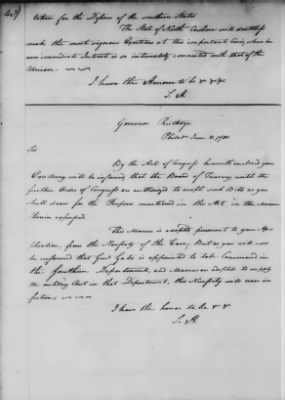 taken for the Defence of the southern States
The State of North Carolina will doubtless
make the most vigorous Exertions at this important Crisis, when her
own immediate Interest is so intimately connected with that of the
Union.
I have the Honour to be &c &c
S. H.
Governor Rutledge
Philad. June 1780
Sir
By the Act of Congress herewith enclosed your
Excellency will be informed, that the Board of Treasury until the
further Order of Congress are authorized to accept such Bills as you
shall draw for the Purposes mentioned in the Act, in the Manner
therein expressed.
This Measure is adopted pursuant to your Ap-
plication, from the Necessity of the Case; But as you will now
be informed that Genl Gates is appointed to take Command in
the Southern Department, and Measures adopted to supply
the military Chest in that Department, the Necessity will cease in
future
I have the honor to be &c &c
S. H.